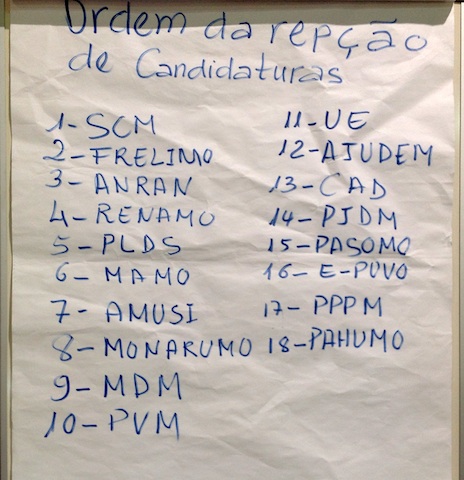 Ordem da repção
de Candidaturas
1-SCM
2-FRELIMO
3-ANRAN
4-RENAMO
5-PLDS
6-MAMO
7-AMUSI
8-MONARUMO
9-MDM
10-PVM
11-UE
12-AJUDEM
13-CAD
14-PJDM
15-PASOMO
16-E-POVO
17-PPPM
18-PAHUMO